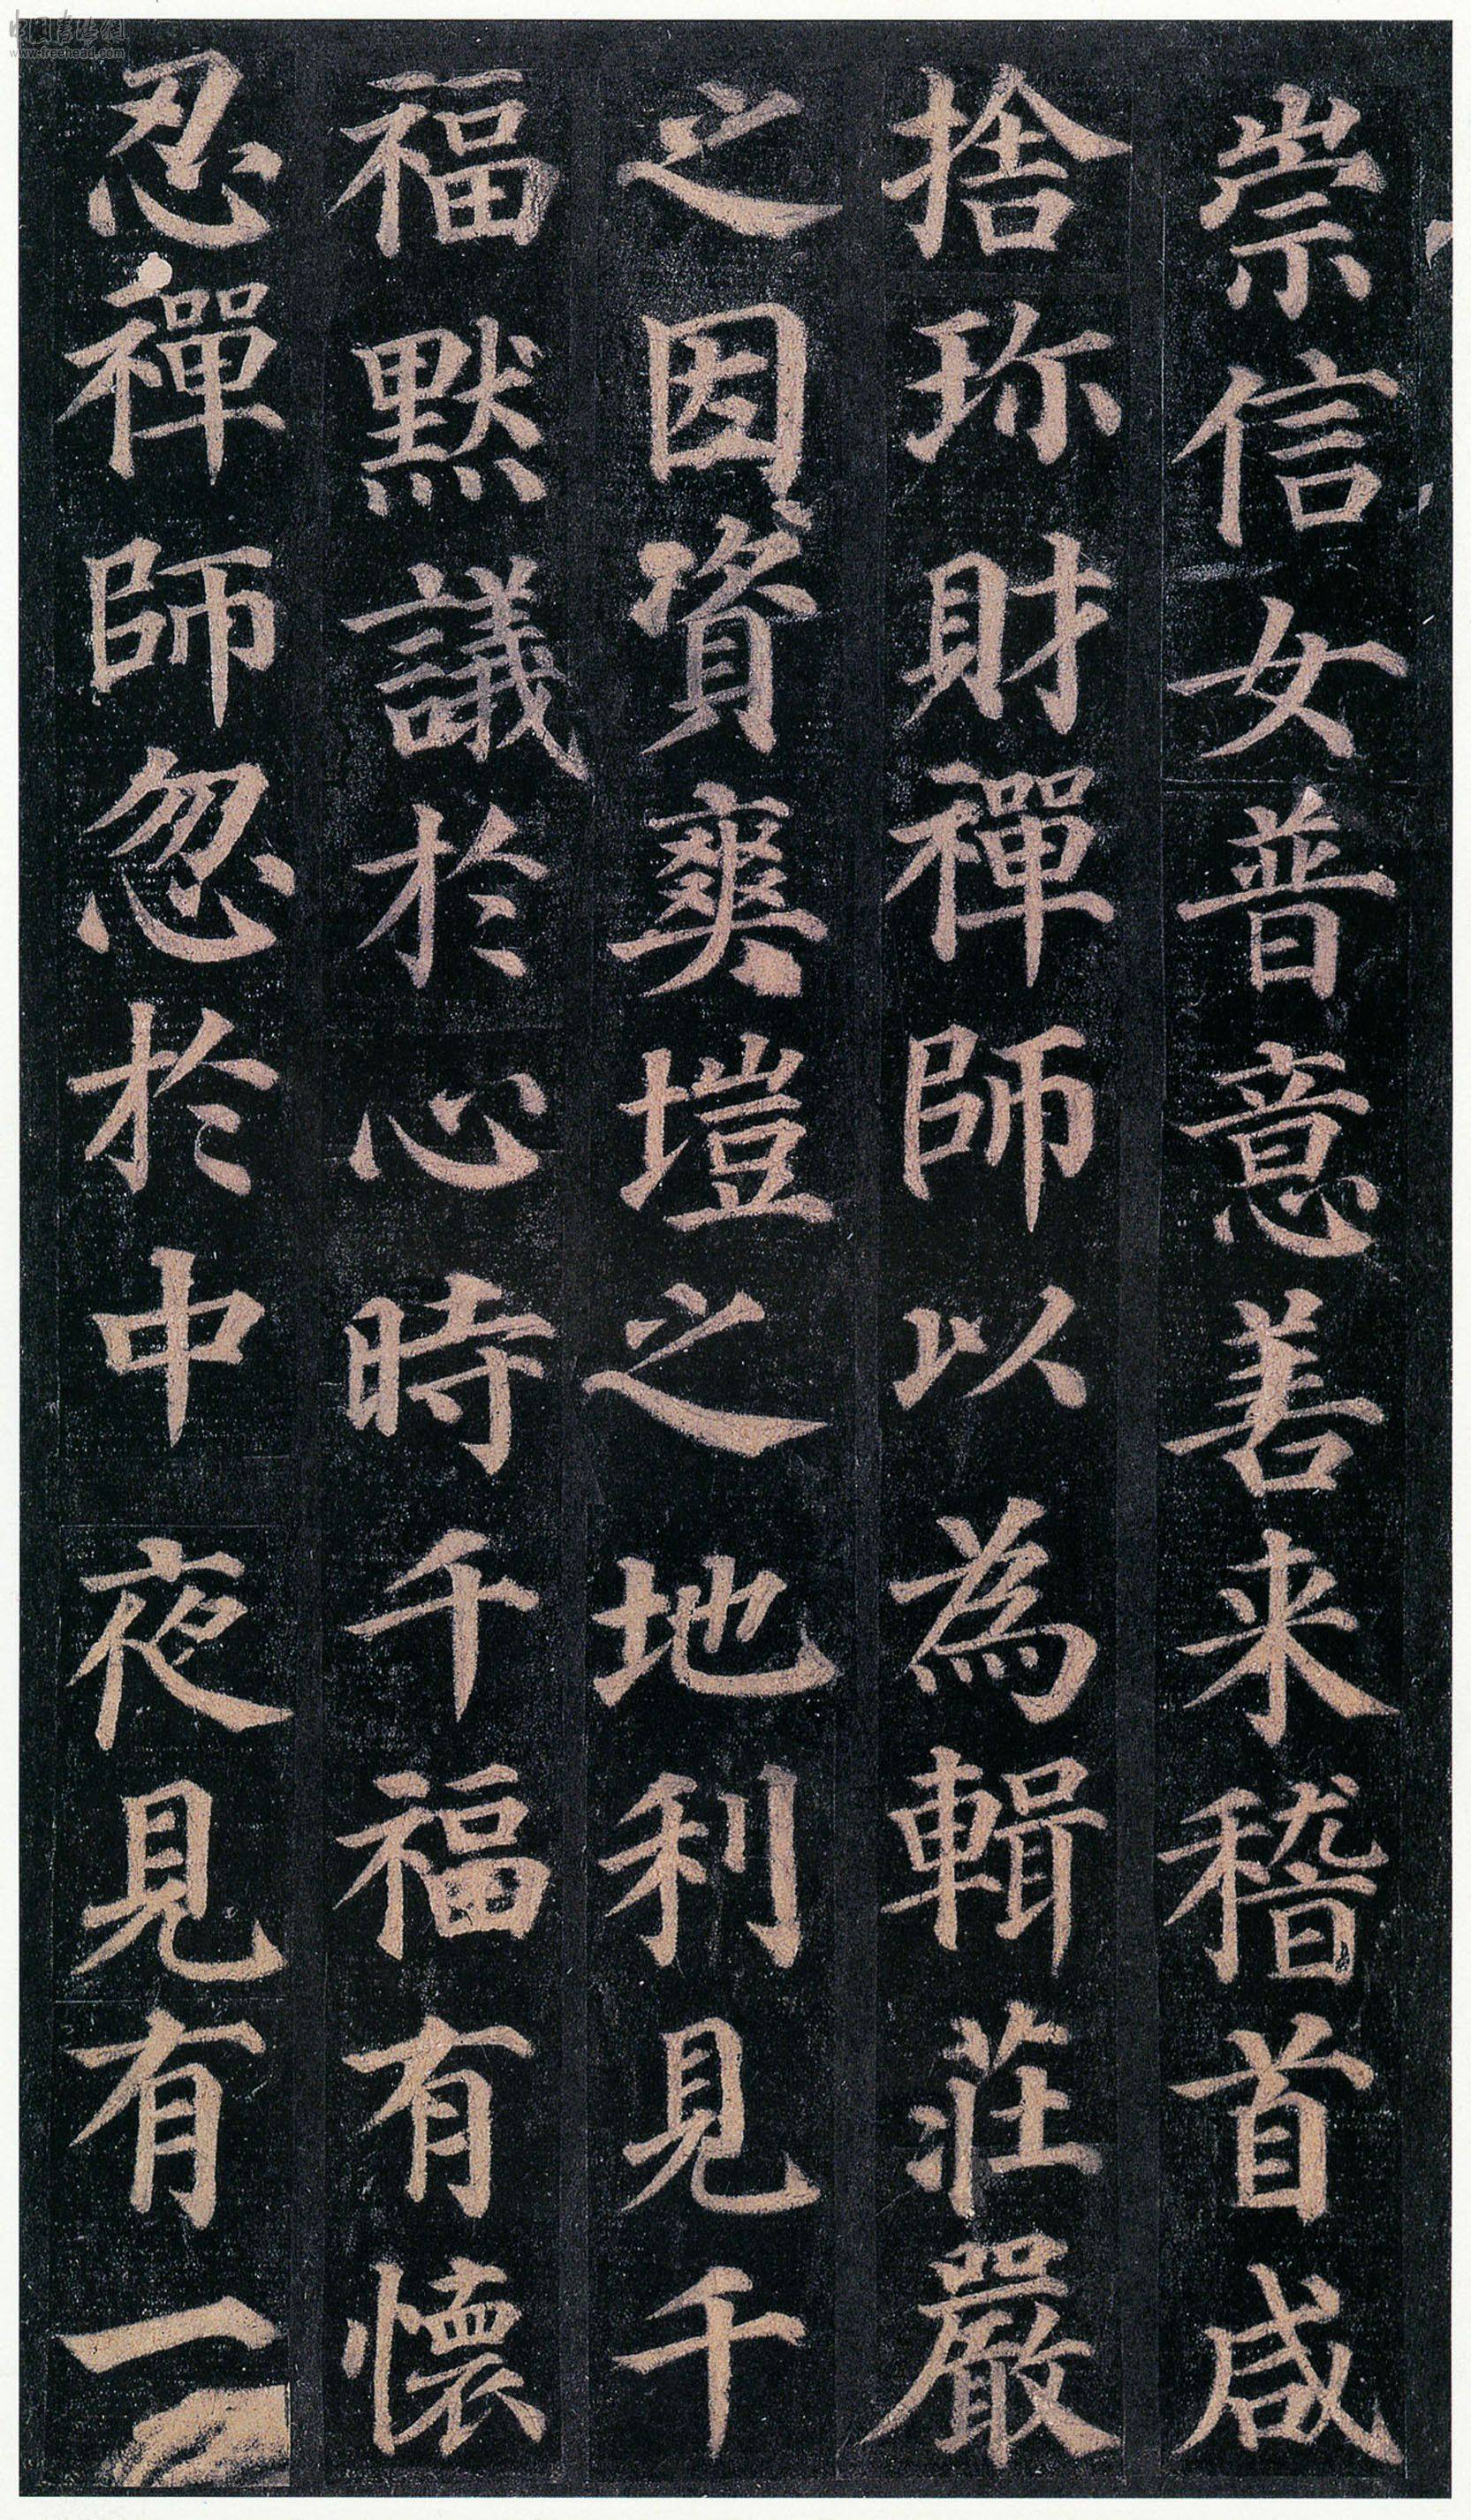 崇信女普意善来稽首咸
捨珎財禪師以為輯莊嚴
之因資爽塏之地利見千
福默議於心時千福有懷
忍禪師忽於中夜見有一
中国书法网
www.freehead.com